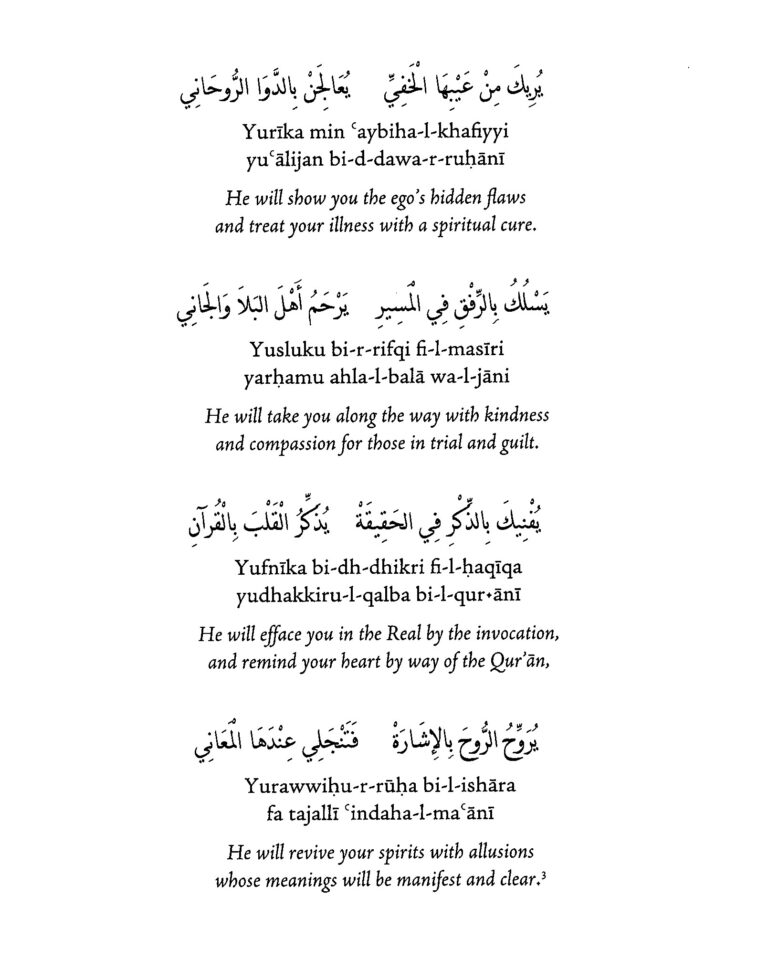 يُرِيكَ مِنْ عَيْبِهَا الْخَفِيِّ يُعَالِجَنْ بِالدَّوَا الرُّوحَانِي
Yurīka min ʿaybiha-l-khafiyyi
yuʿālijan bi-d-dawa-r-ruḥānī
He will show you the ego’s hidden flaws
and treat your illness with a spiritual cure.
يَسْلُكُ بِالرِّفْقِ فِي الْمَسِيرِ يَرْحَمُ أَهْلَ البَلاَ وَالْجَانِي
Yusluku bi-r-rifqi fi-l-masīri
yarḥamu ahla-l-balā wa-l-jāni
He will take you along the way with kindness
and compassion for those in trial and guilt.
يُفْنِيكَ بِالذِّكْرِ فِي الحَقِيقَةْ يُذَكِّرُ الْقَلْبَ بِالْقُرآنِ
Yufnīka bi-dh-dhikri fi-l-ḥaqīqa
yudhakkiru-l-qalba bi-l-qur•ānī
He will efface you in the Real by the invocation,
and remind your heart by way of the Qur’ān,
يُرَوِّحُ الرُّوحَ بِالإِشَارَةْ فَتَنْجَلِي عِنْدَهَا الْمَعَانِي
Yurawwiḥu-r-rūḥa bi-l-ishāra
fa tajallī ʿindaha-l-maʿānī
He will revive your spirits with allusions
whose meanings will be manifest and clear.³